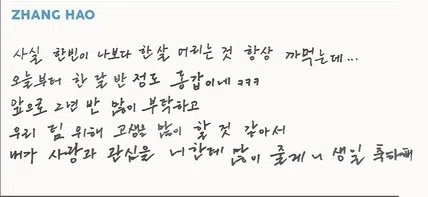 ZHANG HAO
사실 한빈이 나보다 한살 어리는 것 항상 까먹는데...
오늘부터 한 달 반 정도 동갑이네 ㅋㅋㅋ
앞으로 2년 반 많이 부탁하고
우리 팀 위해 고생을 많이 할 것 같아서
내가 사랑과 관심을 너한테 많이 줄게 ㄴ 생일 축하해